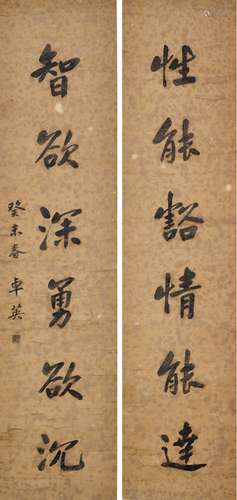 性能豁情能達
智欲深勇欲沉
癸未春 卓英